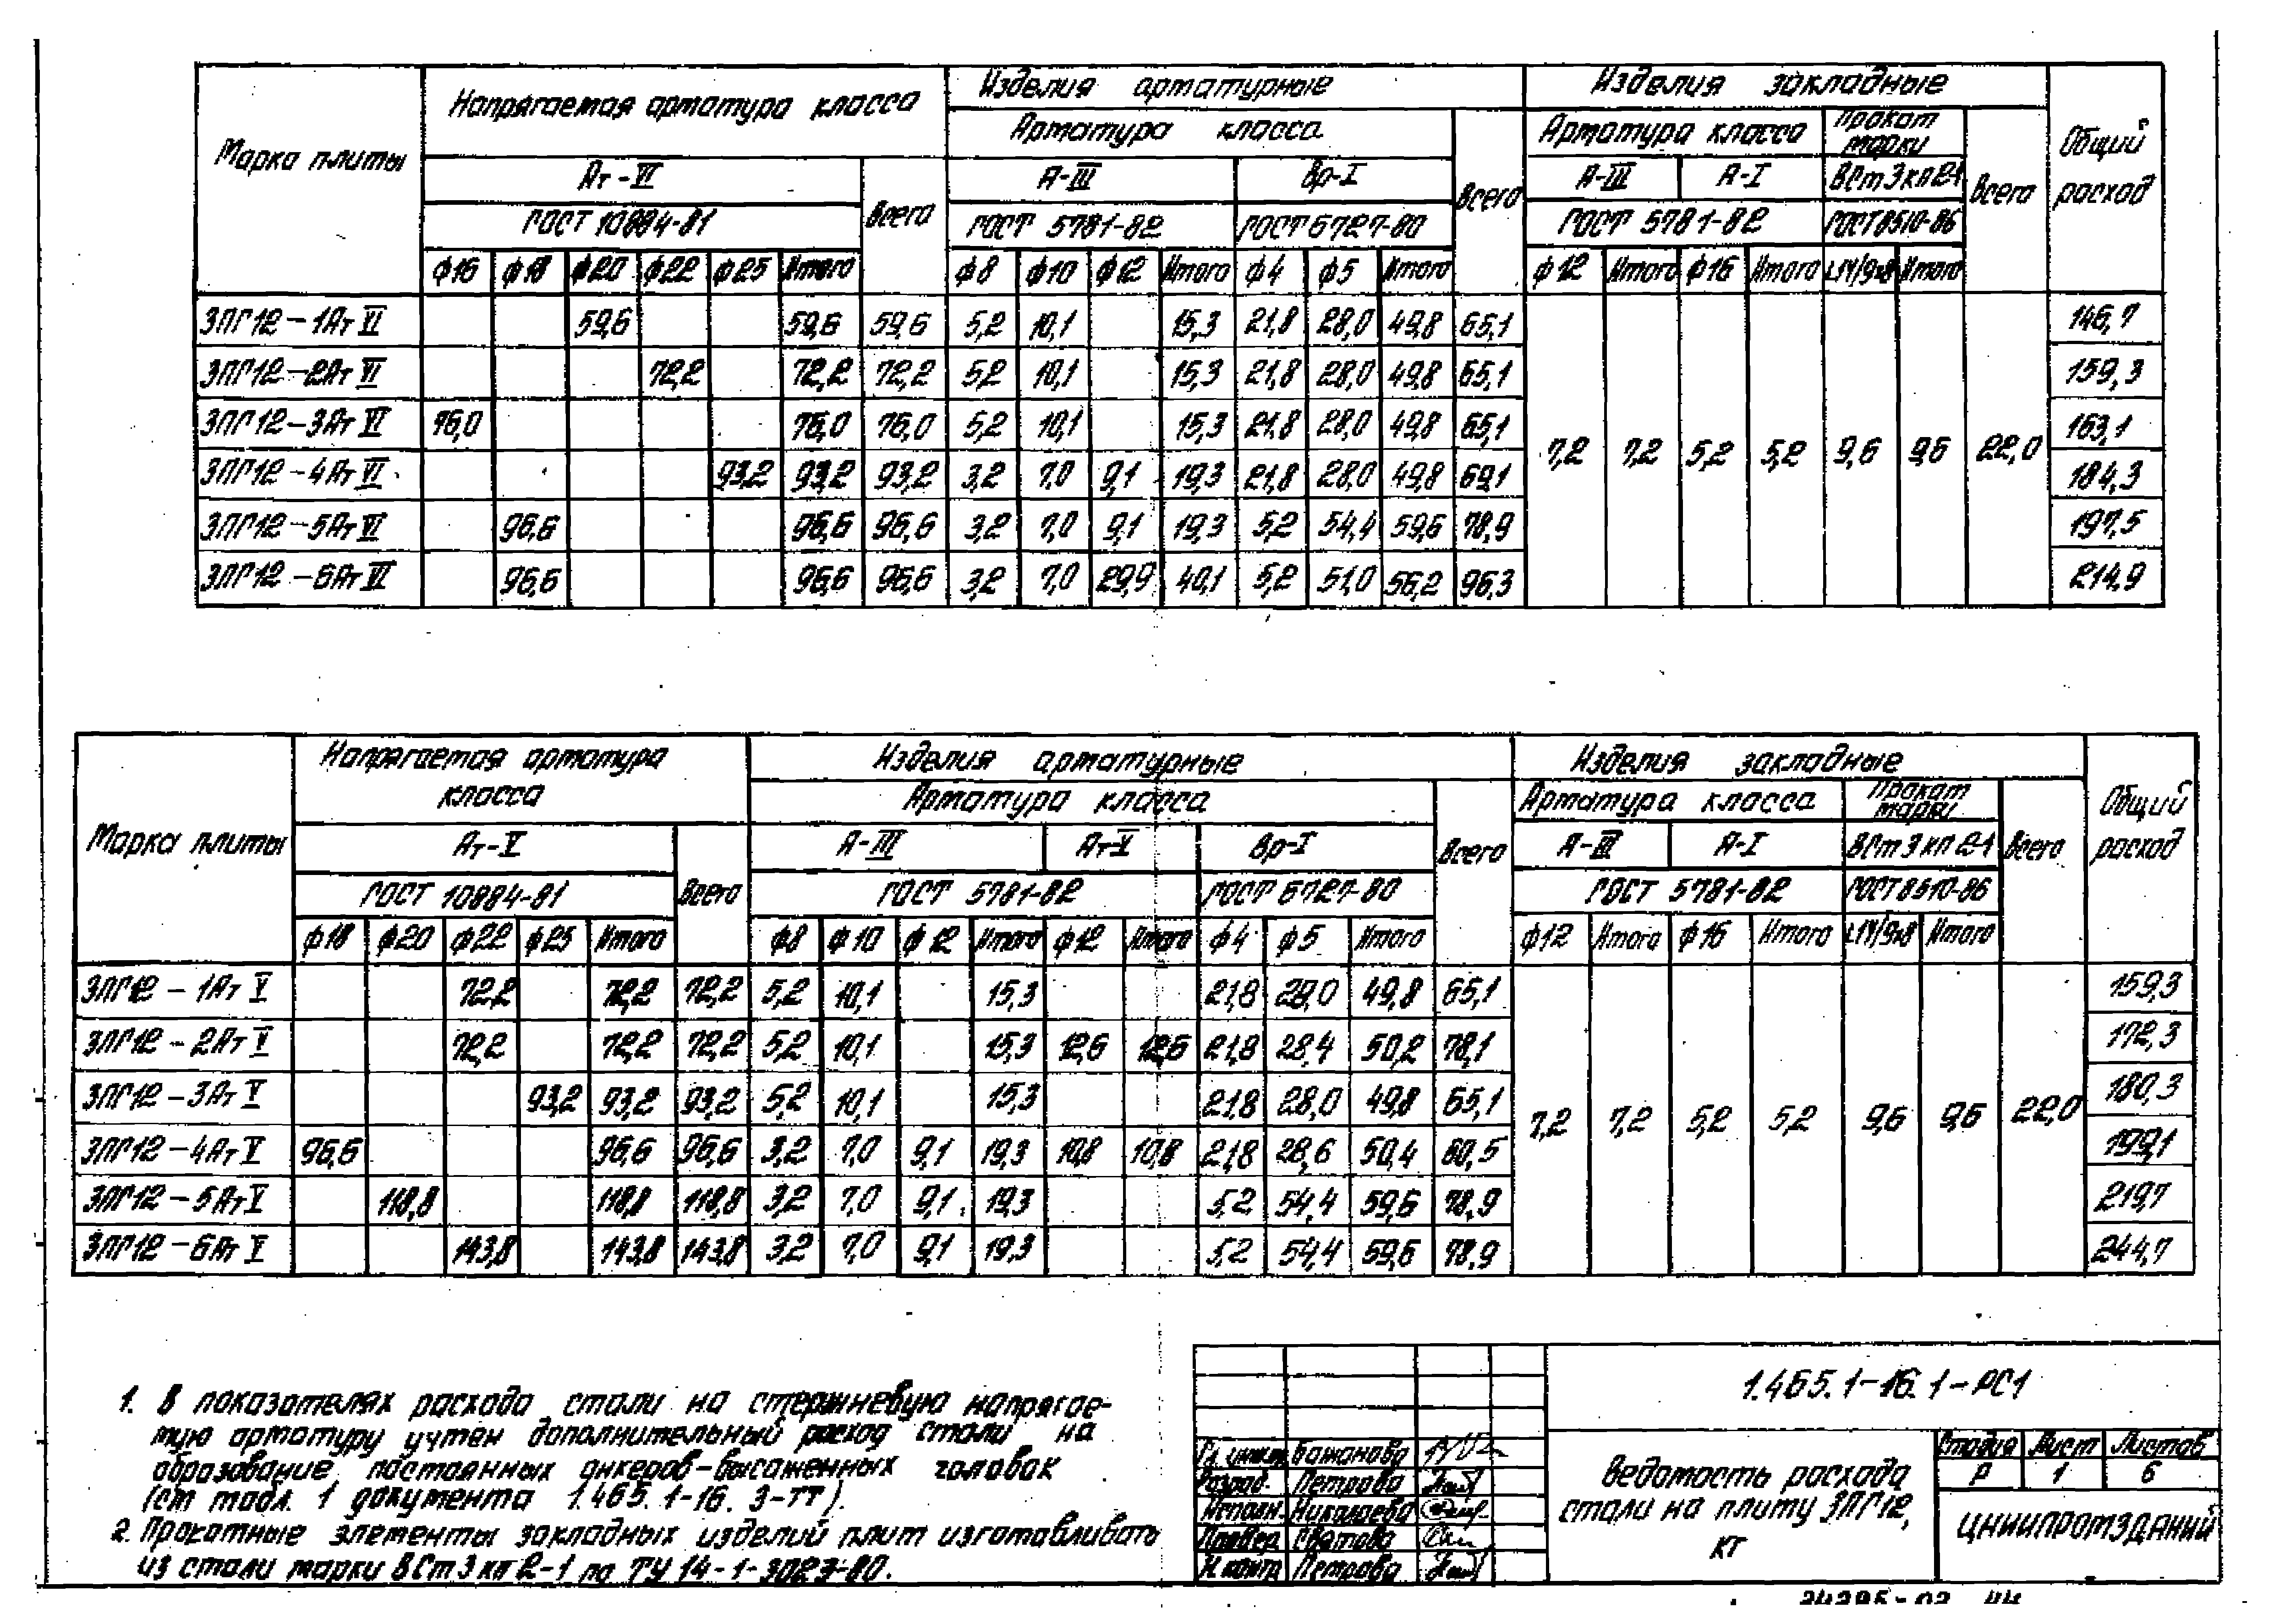 Марка плиты Напрягаемая арматура класса Изделия арматурные Изделия закладные Общий расход
Арматура класса Всего Арматура класса Прокат марки Всего
Ат-VI Всего А-III Вр-I А-III А-I ВСт3кп2-1
ГОСТ 10884-81 ГОСТ 5781-82 ГОСТ 6727-80 ГОСТ 5781-82 ГОСТ 8510-86
ф16 ф18 ф20 ф22 ф25 Итого ф8 ф10 ф12 Итого ф4 ф5 Итого ф12 Итого ф16 Итого Итого
3ПГ12-1АтVI 59,6 59,6 59,6 5,2 10,1 15,3 21,8 28,0 49,8 65,1 146,7
3ПГ12-2АтVI 72,2 72,2 72,2 5,2 10,1 15,3 21,8 28,0 49,8 65,1 159,3
3ПГ12-3АтVI 76,0 76,0 76,0 5,2 10,1 15,3 21,8 28,0 49,8 65,1 163,1
7,2 7,2 5,2 5,2 9,6 9,6 22,0
3ПГ12-4АтVI 93,2 93,2 93,2 3,2 7,0 9,1 19,3 21,8 28,0 49,8 69,1 184,3
3ПГ12-5АтVI 96,6 96,6 96,6 3,2 7,0 9,1 19,3 5,2 54,4 59,6 78,9 197,5
3ПГ12-6АтVI 96,6 96,6 96,6 3,2 7,0 29,9 40,1 5,2 51,0 56,2 96,3 214,9
Марка плиты Напрягаемая арматура класса Изделия арматурные Изделия закладные Общий расход
Арматура класса Всего Арматура класса Прокат марки Всего
Ат-V Всего А-III Ат-V Вр-I А-III А-I ВСт3кп2-1
ГОСТ 10884-81 ГОСТ 5781-82 ГОСТ 6727-80 ГОСТ 5781-82 ГОСТ 8510-86
ф18 ф20 ф22 ф25 Итого ф8 ф10 ф12 Итого ф12 Итого ф4 ф5 Итого ф12 Итого ф16 Итого Итого
3ПГ12-1АтV 72,2 72,2 72,2 5,2 10,1 15,3 21,8 28,0 49,8 65,1 159,3
3ПГ12-2АтV 72,2 72,2 72,2 5,2 10,1 15,3 12,6 12,6 21,8 28,4 50,2 78,1 172,3
3ПГ12-3АтV 93,2 93,2 93,2 5,2 10,1 15,3 21,8 28,0 49,8 65,1 180,3
7,2 7,2 5,2 5,2 9,6 9,6 22,0
3ПГ12-4АтV 96,6 96,6 96,6 3,2 7,0 9,1 19,3 10,8 10,8 21,8 28,6 50,4 80,5 199,1
3ПГ12-5АтV 118,8 118,8 118,8 3,2 7,0 9,1 19,3 5,2 54,4 59,6 78,9 219,7
3ПГ12-6АтV 143,8 143,8 143,8 3,2 7,0 9,1 19,3 5,2 54,4 59,6 78,9 244,7
1. В показателях расхода стали на стержневую напрягае-
мую арматуру учтен дополнительный расход стали на
образование постоянных анкеров-высаженных головок
(см табл. 1 документа 1.465.1-16.3-ТТ).
2. Прокатные элементы закладных изделий плит изготавливать
из стали марки ВСт3кп2-1 по ТУ 14-1-3023-80.
1.465.1-16.1-РС1
Бажанова
Разраб. Петрова
Исполн. Николаева
Провер.
Н.контр Петрова
Ведомость расхода
стали на плиту 3ПГ12,
кг
Стадия Лист Листов
Р 1 6
ЦНИИПРОМЗДАНИЙ